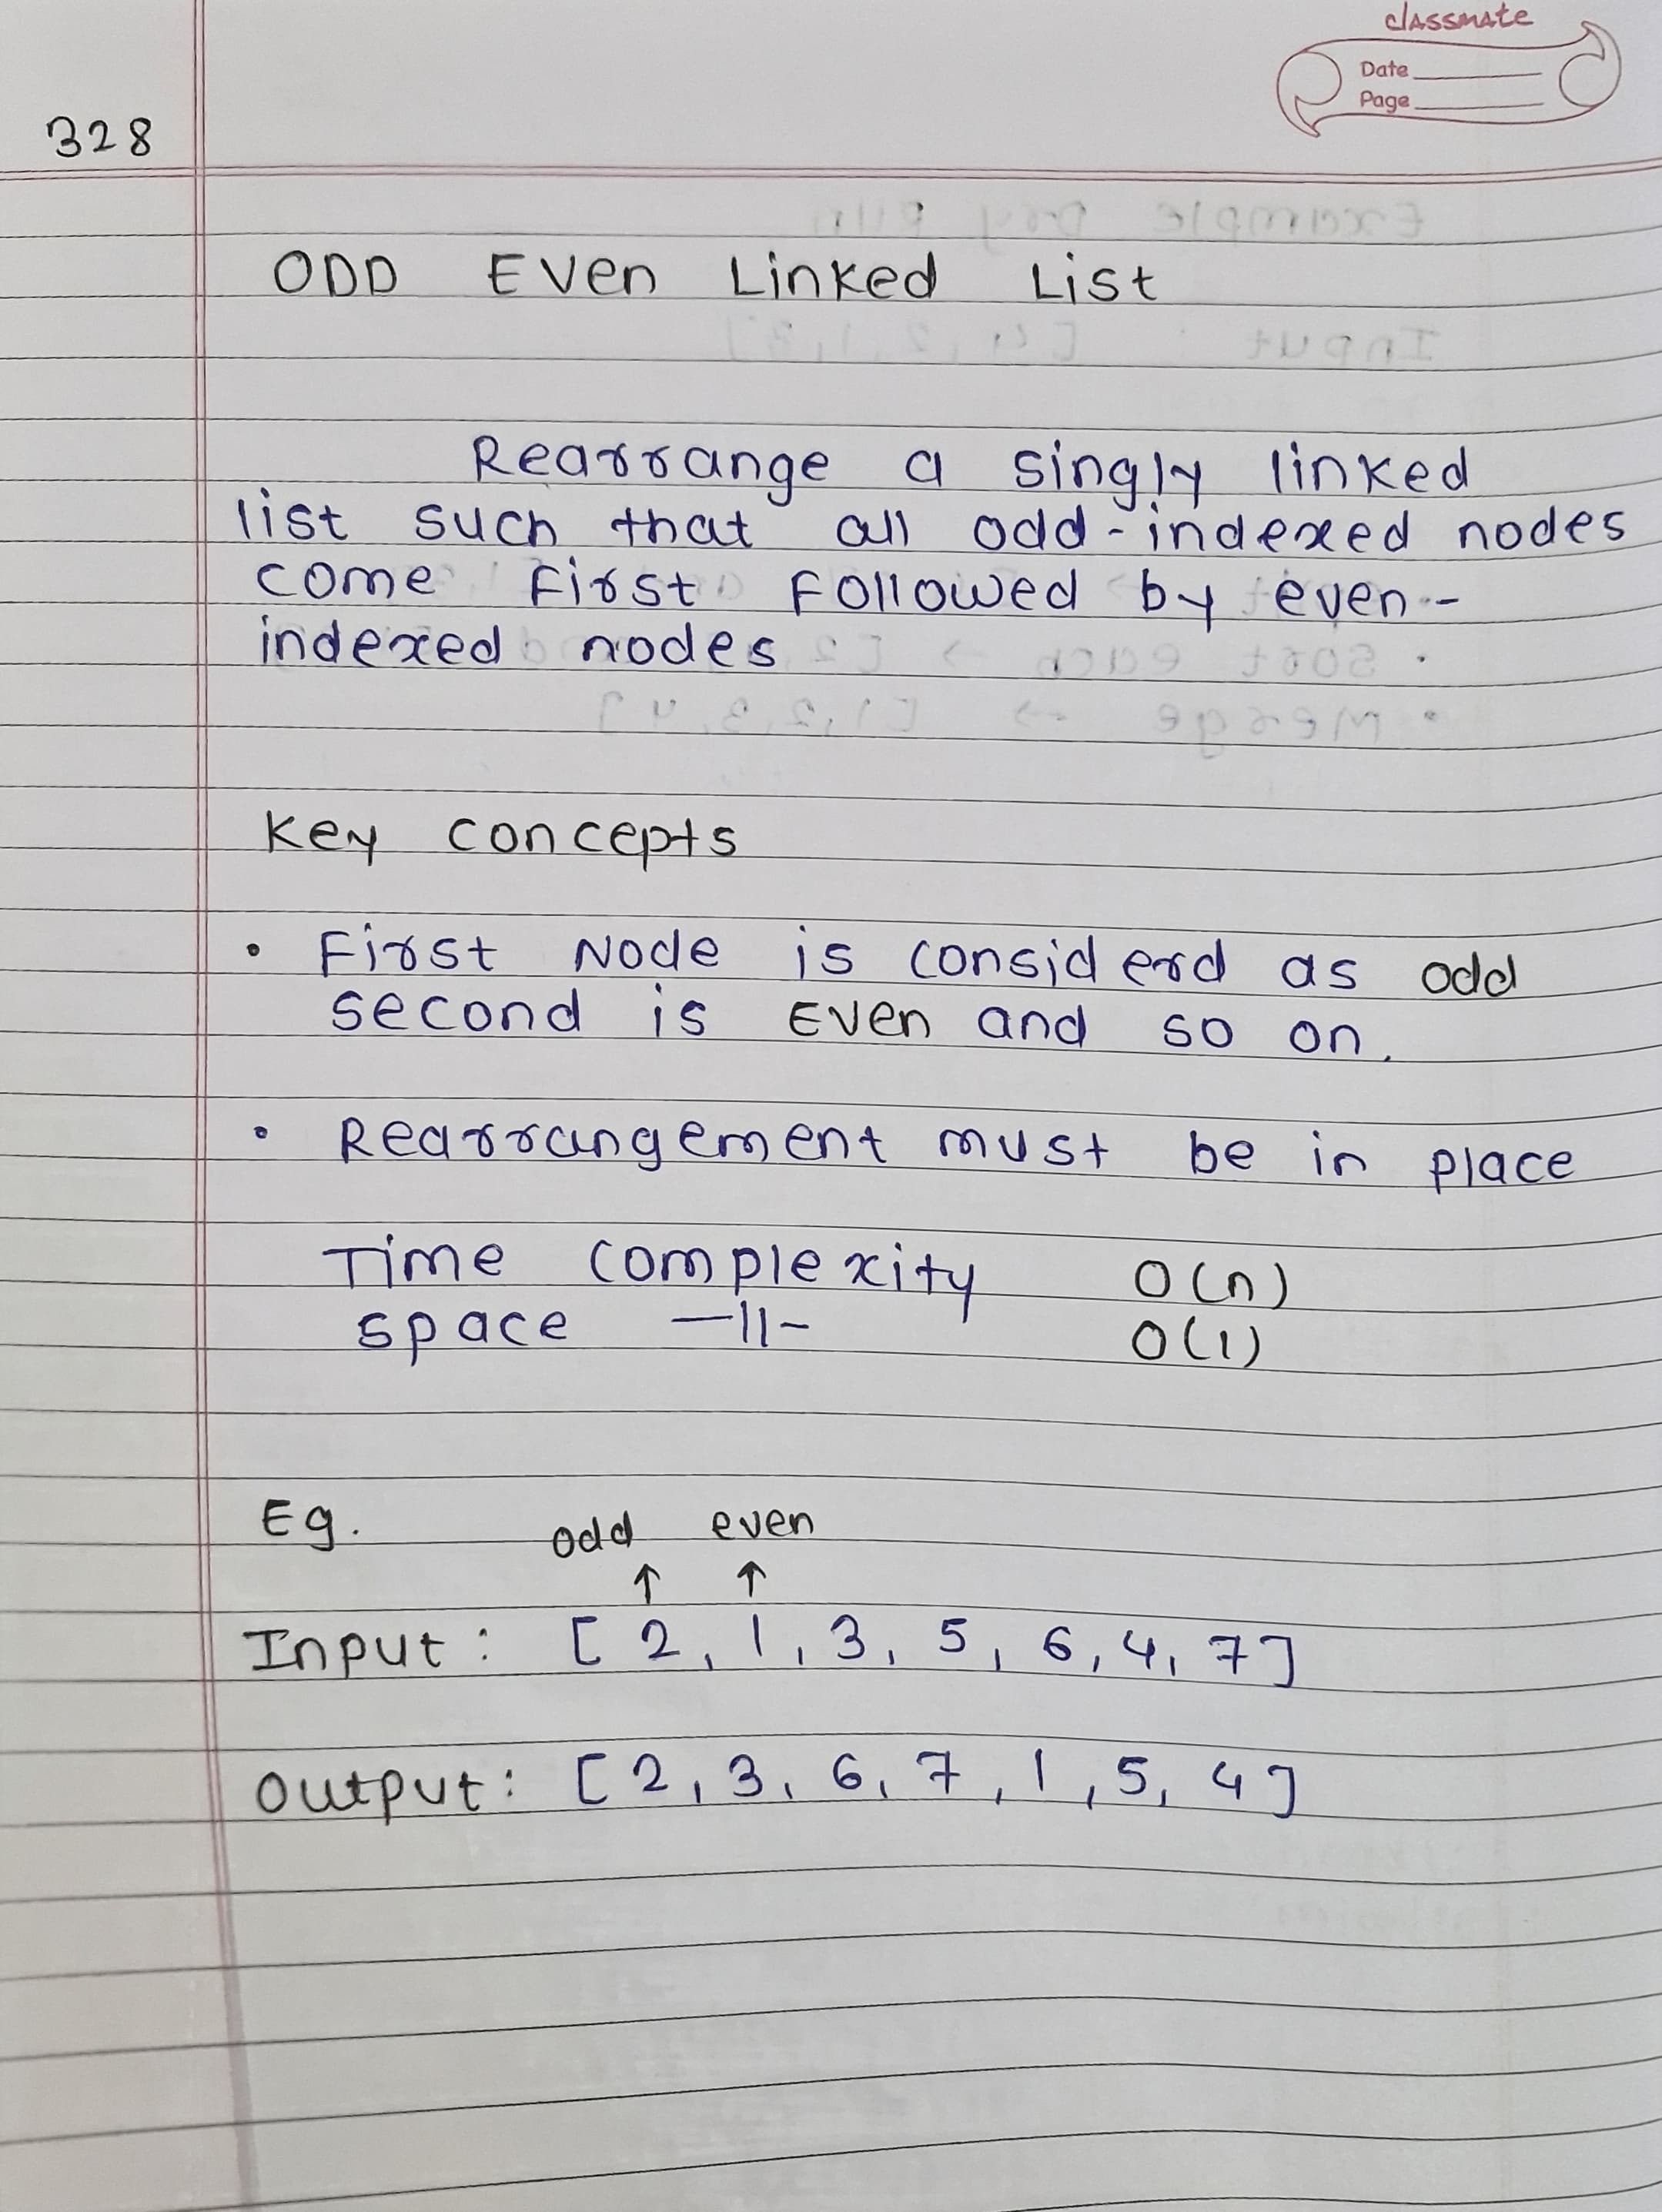 classmate
Date
Page
328
ODD Even Linked List
Rearrange a singly linked
list such that all odd-indexed nodes
come first followed by even-
indexed nodes
Key concepts
• First Node is considerd as odd
second is Even and so on.
• Rearrangement must be in place
Time complexity O(n)
space —11— O(1)
Eg. odd even
↑ ↑
Input: [2, 1, 3, 5, 6, 4, 7]
Output: [2, 3, 6, 7, 1, 5, 4]